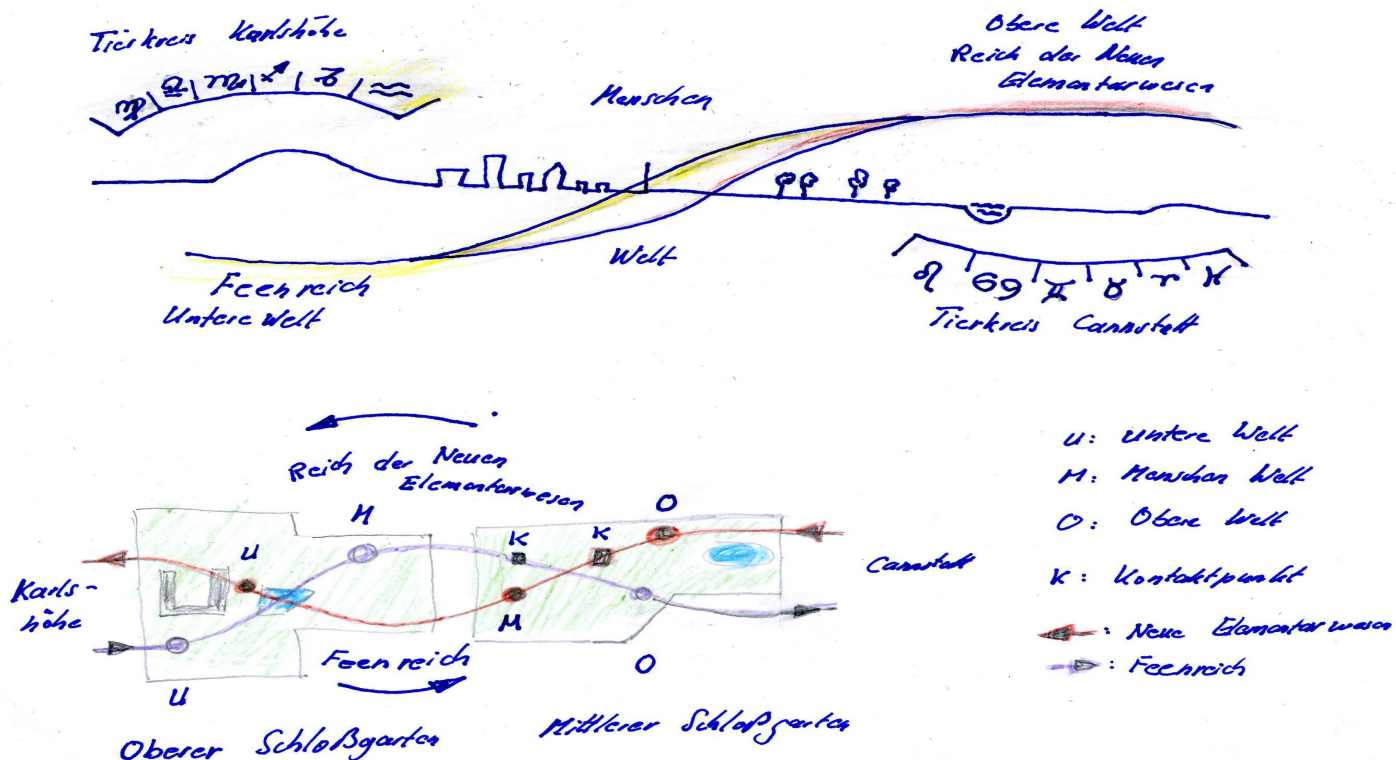 Tierkreis Karlshöhe
♍ ♎ ♏ ♐ ♑ ♒
Menschen
Obere Welt
Reich der Neuen
Elementarwesen
Feenreich
Untere Welt
Welt
♌ ♋ ♊ ♉ ♈ ♓
Tierkreis Cannstatt
Reich der Neuen
Elementarwesen
M
O
U
K
K
Karls-
höhe
M
Cannstatt
U
Feenreich
O
Oberer Schloßgarten
Mittlerer Schloßgarten
U: Untere Welt
M: Menschen Welt
O: Obere Welt
K: Kontaktpunkt
: Neue Elementarwesen
: Feenreich